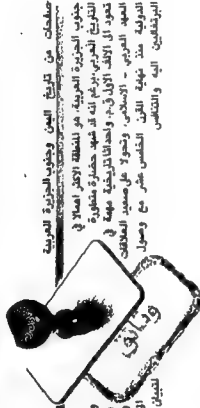 صفحات من تاريخ اليمن وجنوب الجزيرة العربية
جنوب الجزيرة العربية، هو المنطقة الاكثر اهمالا في
التاريخ العربي، برغم انه قد شهد حضارة متطورة
تعود الى الالف الاول ق.م، واحداثا تاريخية مهمة في
العهد العربي - الاسلامي، وتحولا على صعيد العلاقات
الدولية منذ نهاية القرن الخامس عشر مع وصول
البرتغاليين اليه والتنافس
وثائق
لتبيان